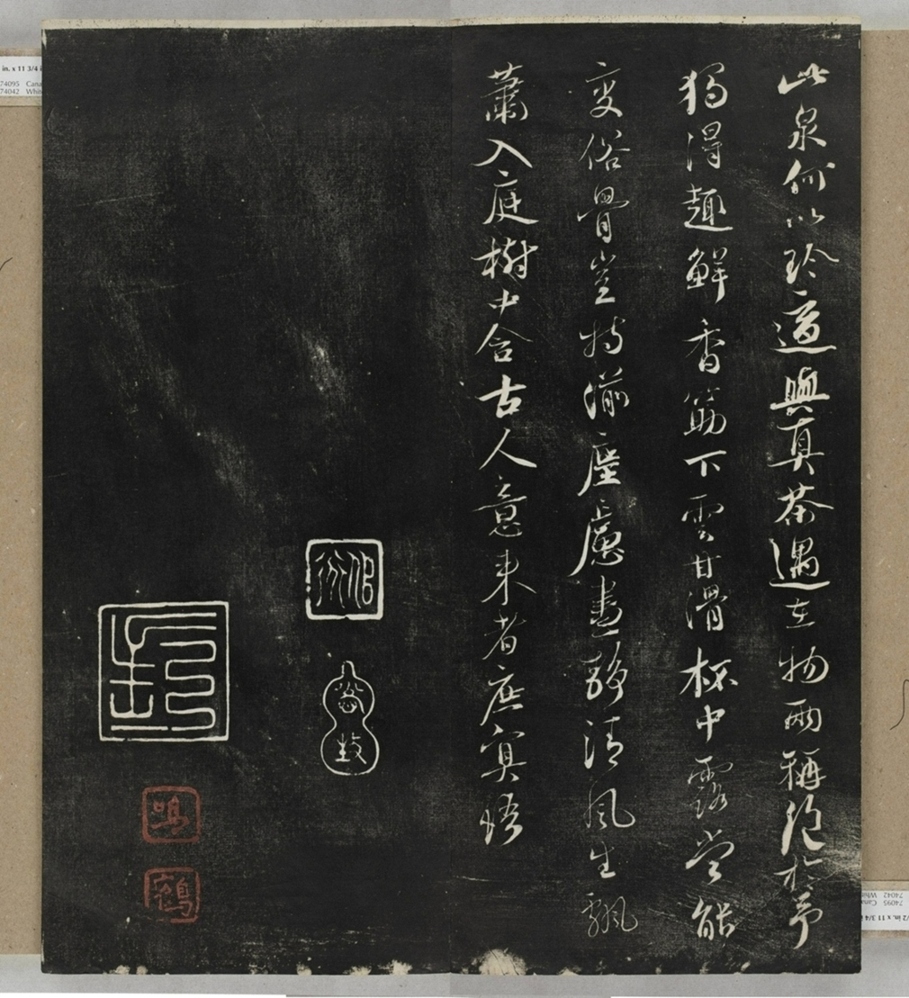 此泉何以珎適與真茶遇在物兩稱絕於予
獨得趣鮮香筯下雲甘滑杯中露當能
變俗骨豈特湔塵慮晝靜清風生飄
蕭入庭樹中含古人意來者庶冥悟
鳴
鶴
in. x 11 3/4
74095
74042